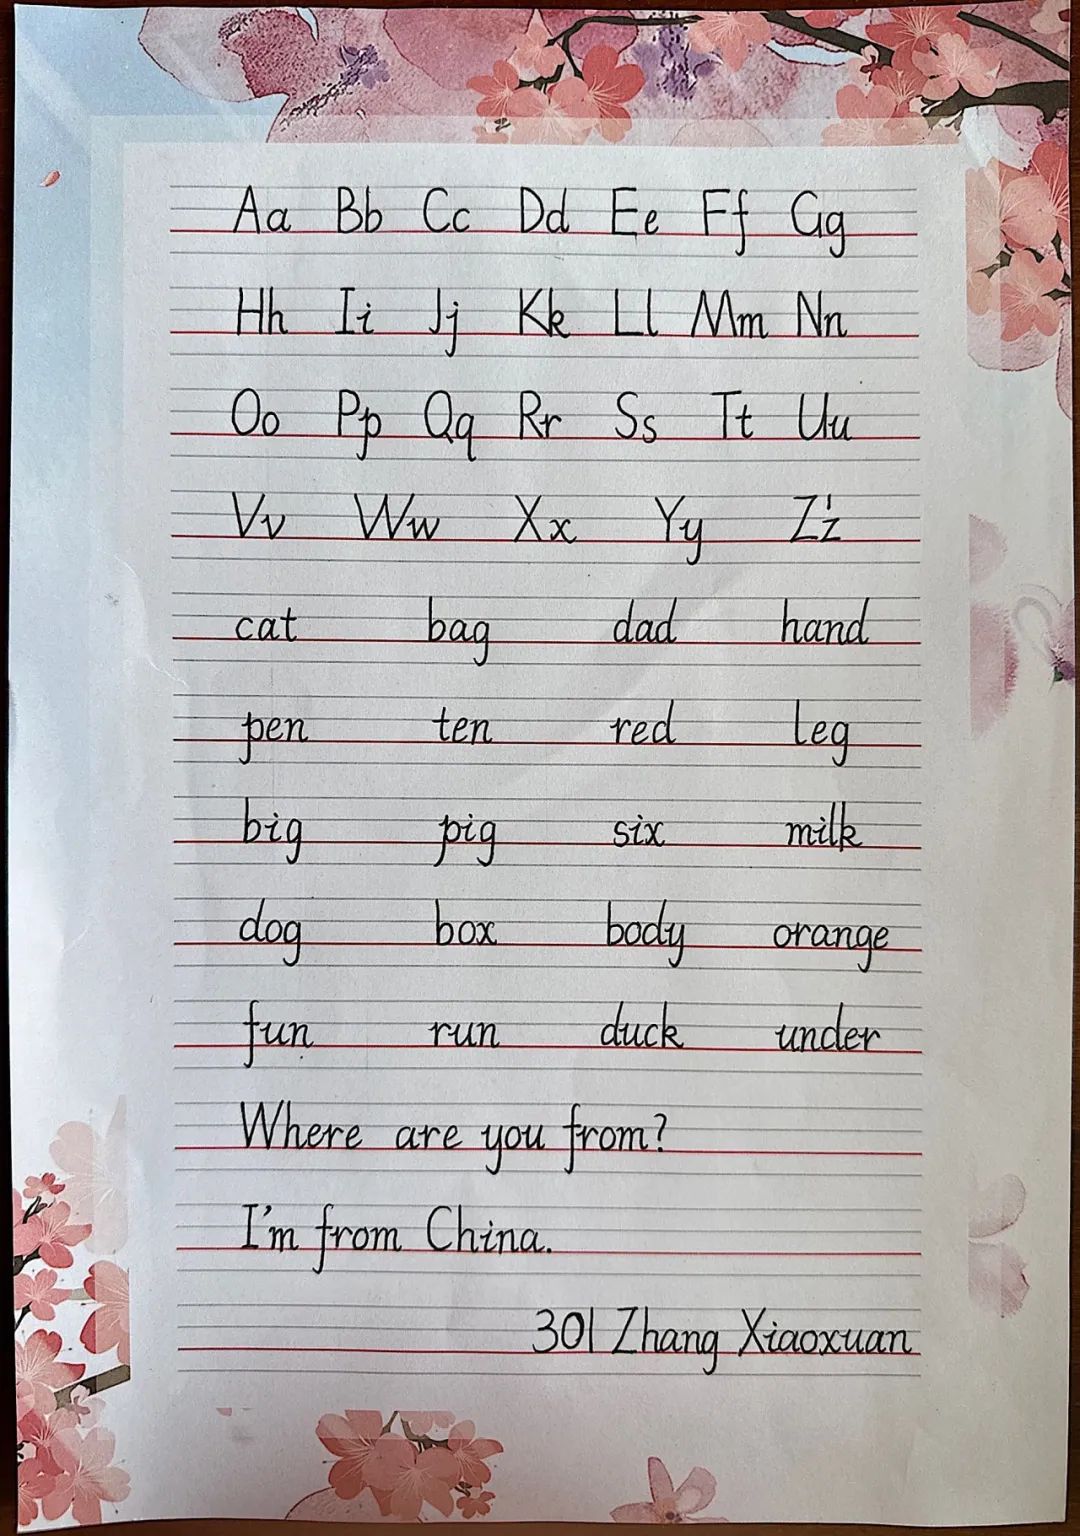 Aa Bb Cc Dd Ee Ff Gg
Hh Ii Jj Kk Ll Mm Nn
Oo Pp Qq Rr Ss Tt Uu
Vv Ww Xx Yy Zz
cat bag dad hand
pen ten red leg
big pig six milk
dog box body orange
fun run duck under
Where are you from?
I'm from China.
301 Zhang Xiaoxuan